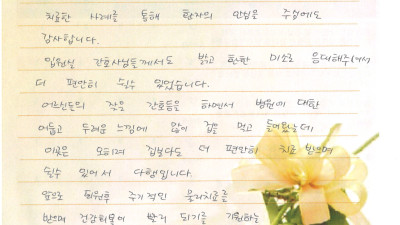 치료한 사례를 통해 환자의 안심을 주심에도
감사합니다.
입원실 간호사님들께서도 밝고 환한 미소로 응대해주셔서
더 편안히 쉴수 있었습니다.
어르신들의 잦은 간호등을 하면서 병원에 대한
어둡고 두려운 느낌에 많이 겁을 먹고 들어왔는데
이곳은 오히려 집보다도 더 편안히 치료 받으며
쉴수 있어서 다행입니다.
앞으로 퇴원후 주기적인 물리치료를
받으며 건강회복이 빨리 되기를 기원하는